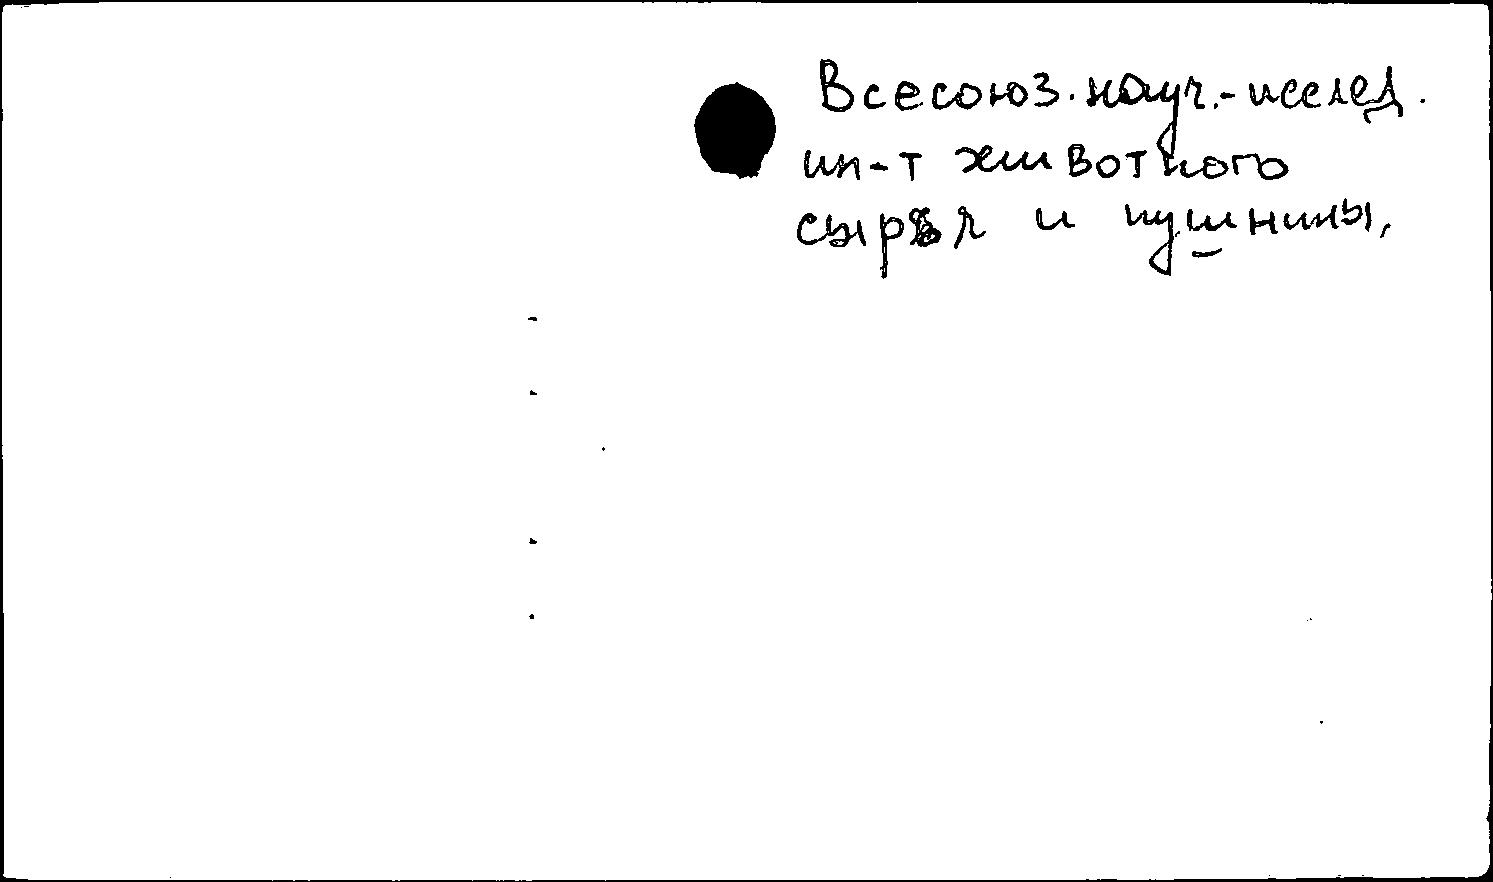 Всесоюз. науч.-исслед.
ин-т животного
сырья и пушнины,